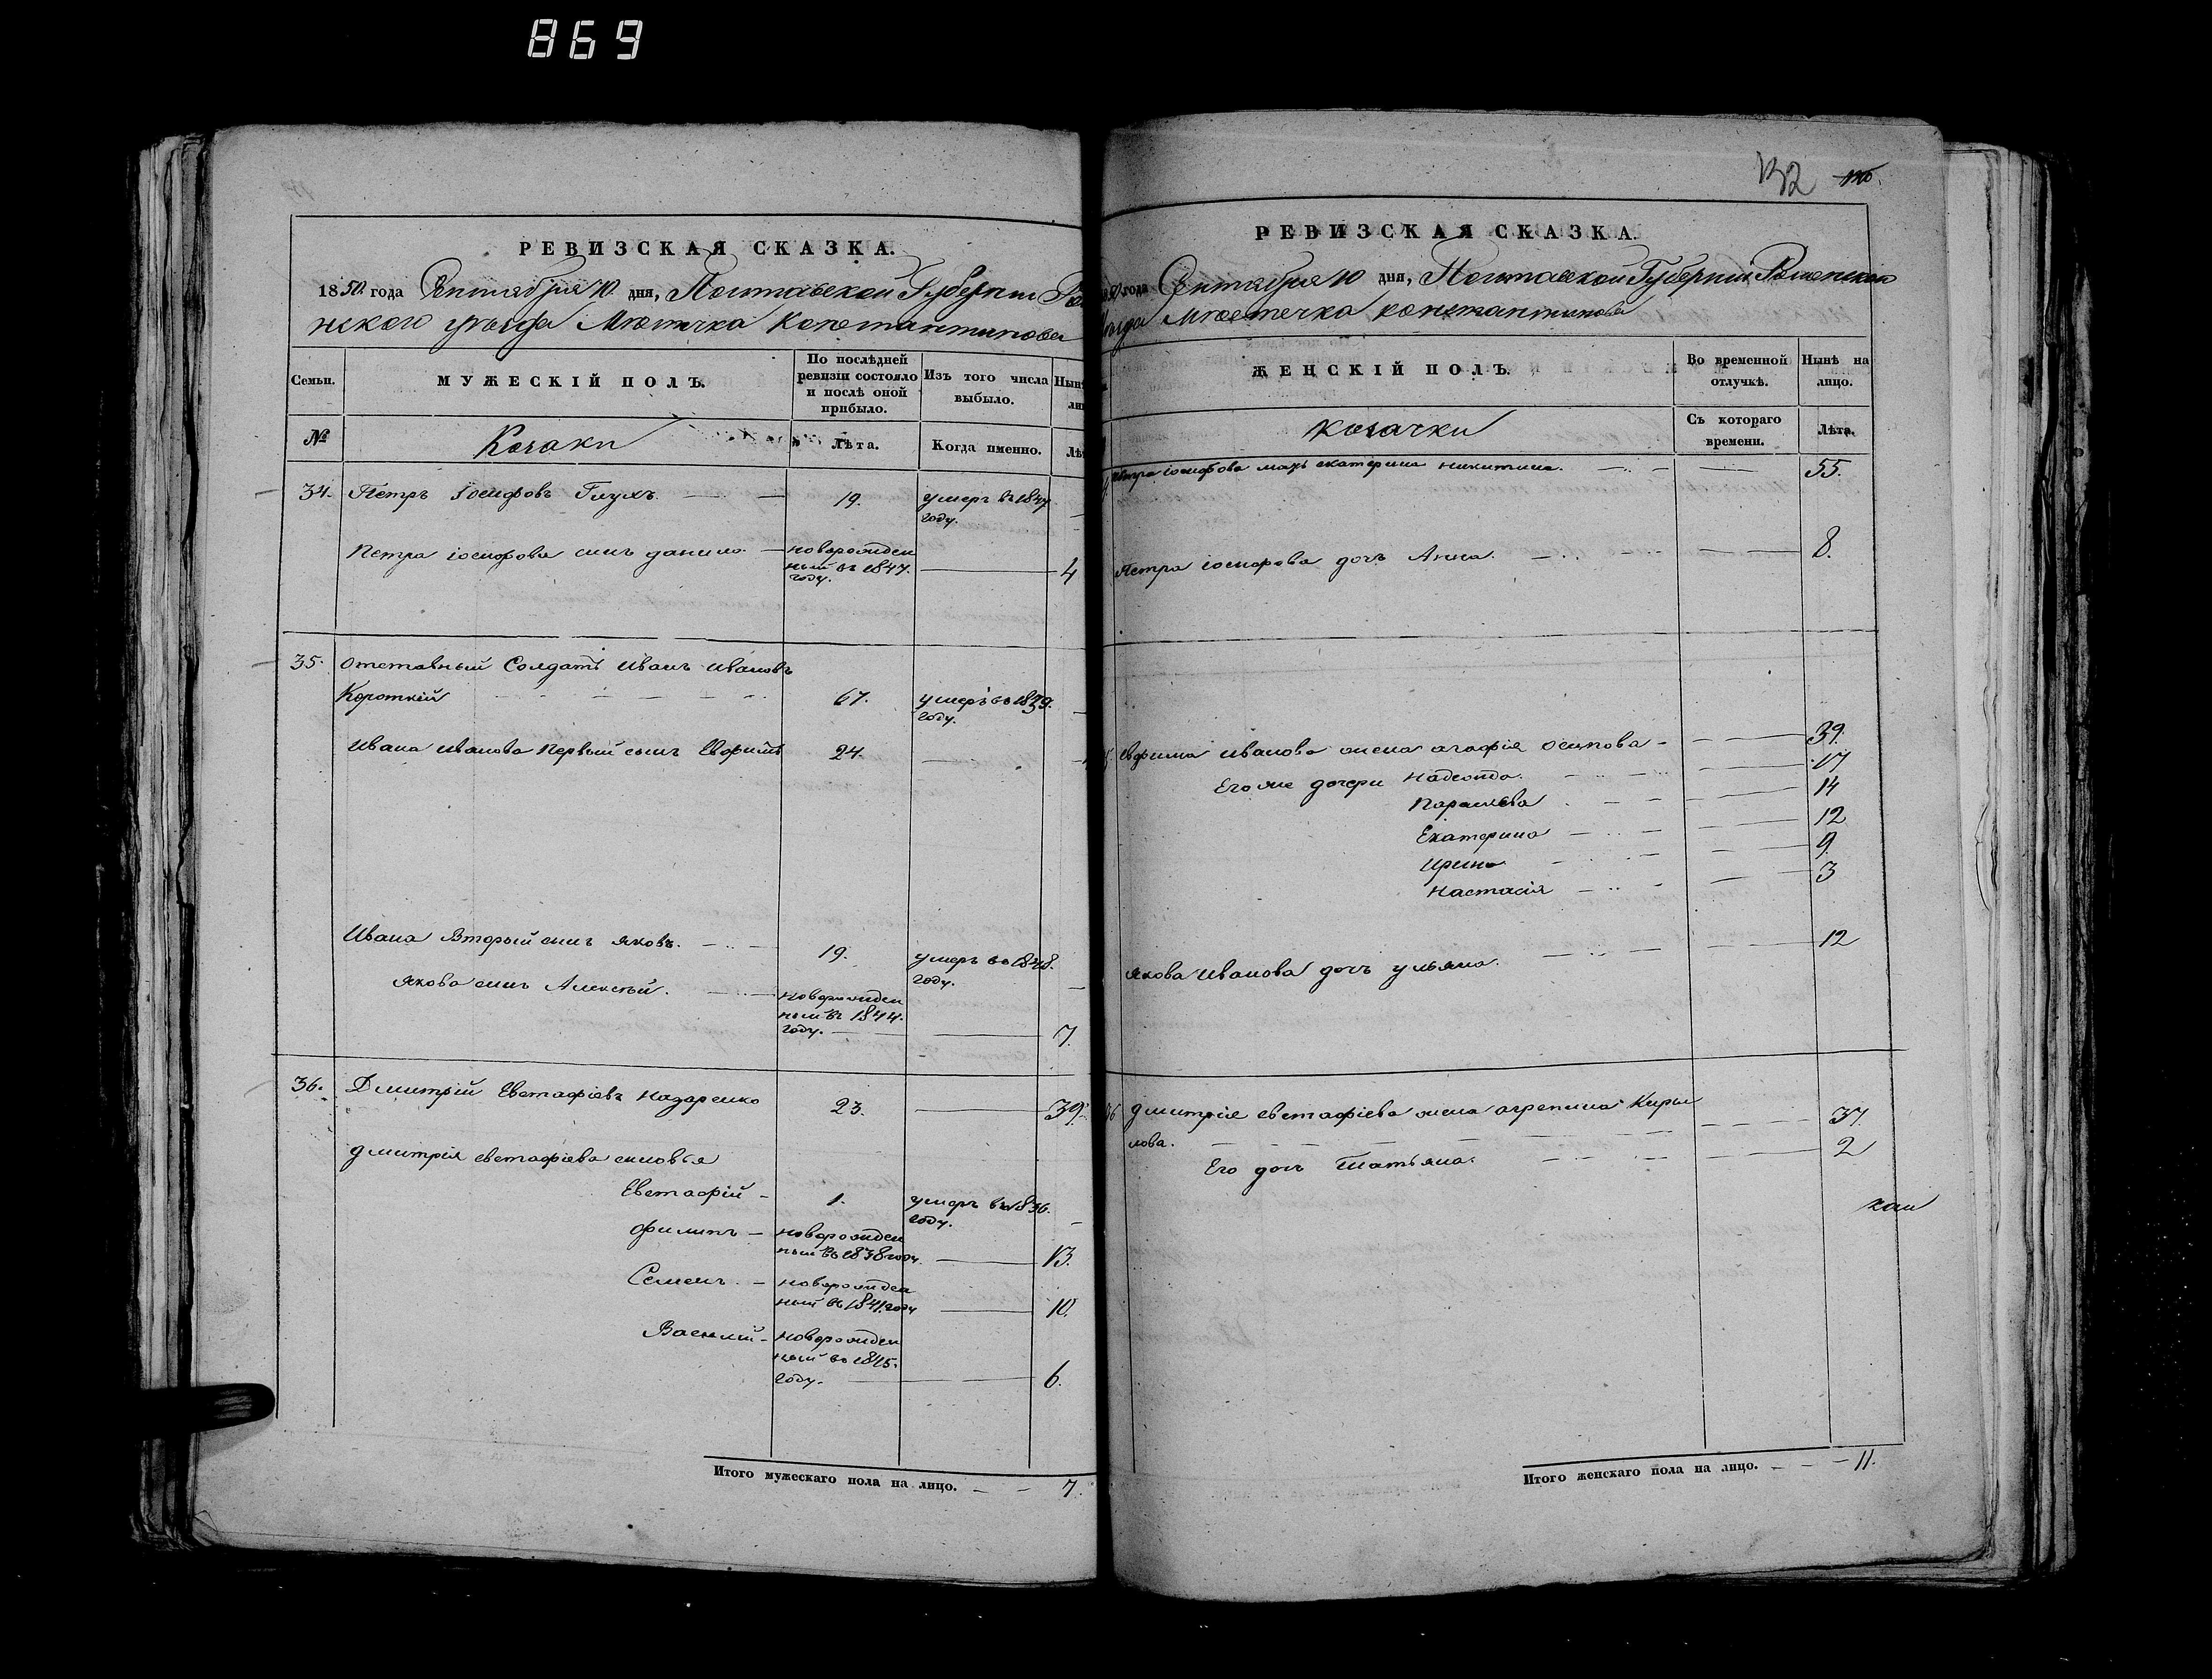 869
РЕВИЗСКАЯ СКАЗКА.
1850. года Сентября 10. дня, Полтавской Губерніи
нского уезда Местечка Константинова
Семьи.
МУЖЕСКІЙ ПОЛЪ.
По послѣдней ревизіи состояло и послѣ оной прибыло.
Изъ того числа выбыло.
№
Козаки
Лѣта.
Когда именно.
34. Петръ Іосифовъ Глухъ. 19. умеръ въ 1847
году.
Петра іосифова сынъ данило. новорожден
ный въ 1847. 4
году.
35. отставный Солдатъ Иванъ Ивановъ
Короткій 67. умеръ въ 1839.
году.
Ивана Иванова Первый сынъ Евфимъ 24.
Ивана Вторый сынъ яковъ. 19. умеръ въ 1848.
году.
якова сынъ Алексѣй. новорожден
ный въ 1844.
году. 7.
36. Дмитрій Евстафіевъ Назаренко 23. 39.
дмитрія евстафіева сыновья
Евстафій 1. умеръ въ 1836.
году.
филипъ новорожден
ный въ 1838 году. 13.
Семенъ. новорожден
ный въ 1841 году 10.
Василій новорожден
ный въ 1845.
году. 6.
Итого мужескаго пола на лицо. 7.
132
РЕВИЗСКАЯ СКАЗКА.
года Сентября 10 дня, Полтавской Губерніи Роменского
Уезда Местечка константинова
ЖЕНСКІЙ ПОЛЪ.
Во временной отлучкѣ.
Нынѣ на лицо.
козачки
Съ котораго времени.
Лѣта.
Петра іосифова мать екатерина никитина. 55.
Петра іосифова дочъ Анна. 8.
Евфима иванова жена агафія осипова 39.
Его же дочери надежда. 17
Параскева 14
Екатерина 12
Ирина 9.
настасія 3
якова иванова дочъ ульяна. 12
36 дмитрія евстафіева жена агрепина Кири
лова. 37.
Его дочъ Татьяна. 2
Итого женскаго пола на лицо. 11.